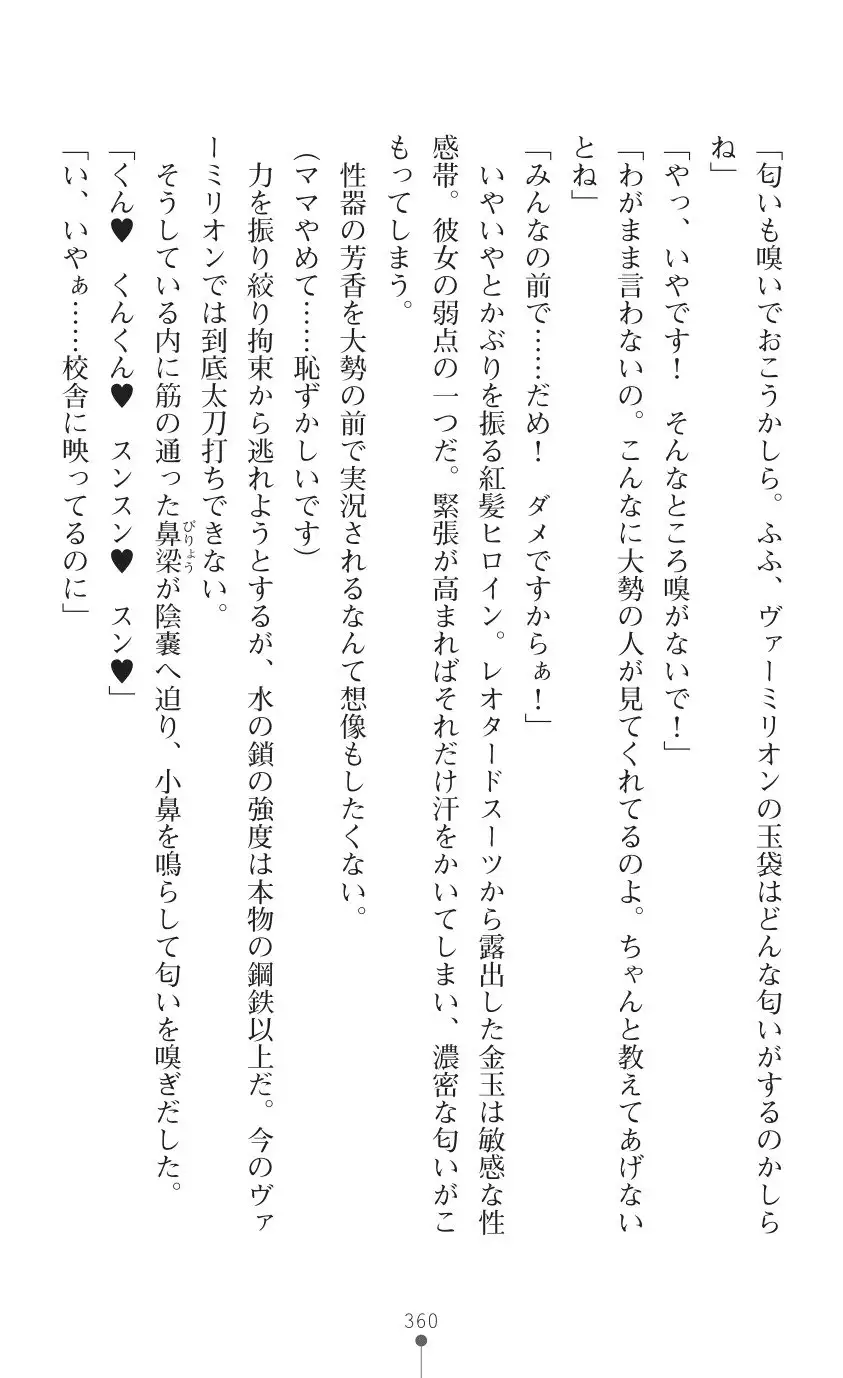 「匂いも嗅いでおこうかしら。ふふ、ヴァーミリオンの玉袋はどんな匂いがするのかしら
ね」
「やっ、いやです！　そんなところ嗅がないで！」
「わがまま言わないの。こんなに大勢の人が見てくれてるのよ。ちゃんと教えてあげない
とね」
「みんなの前で……だめ！　ダメですからぁ！」
　いやいやとかぶりを振る紅髪ヒロイン。レオタードスーツから露出した金玉は敏感な性
感帯。彼女の弱点の一つだ。緊張が高まればそれだけ汗をかいてしまい、濃密な匂いがこ
もってしまう。
　性器の芳香を大勢の前で実況されるなんて想像もしたくない。
（ママやめて……恥ずかしいです）
　力を振り絞り拘束から逃れようとするが、水の鎖の強度は本物の鋼鉄以上だ。今のヴァ
ーミリオンでは到底太刀打ちできない。
　そうしている内に筋の通った鼻梁びりょうが陰嚢へ迫り、小鼻を鳴らして匂いを嗅ぎだした。
「くん♥　くんくん♥　スンスン♥　スン♥」
「い、いやぁ……校舎に映ってるのに」
360